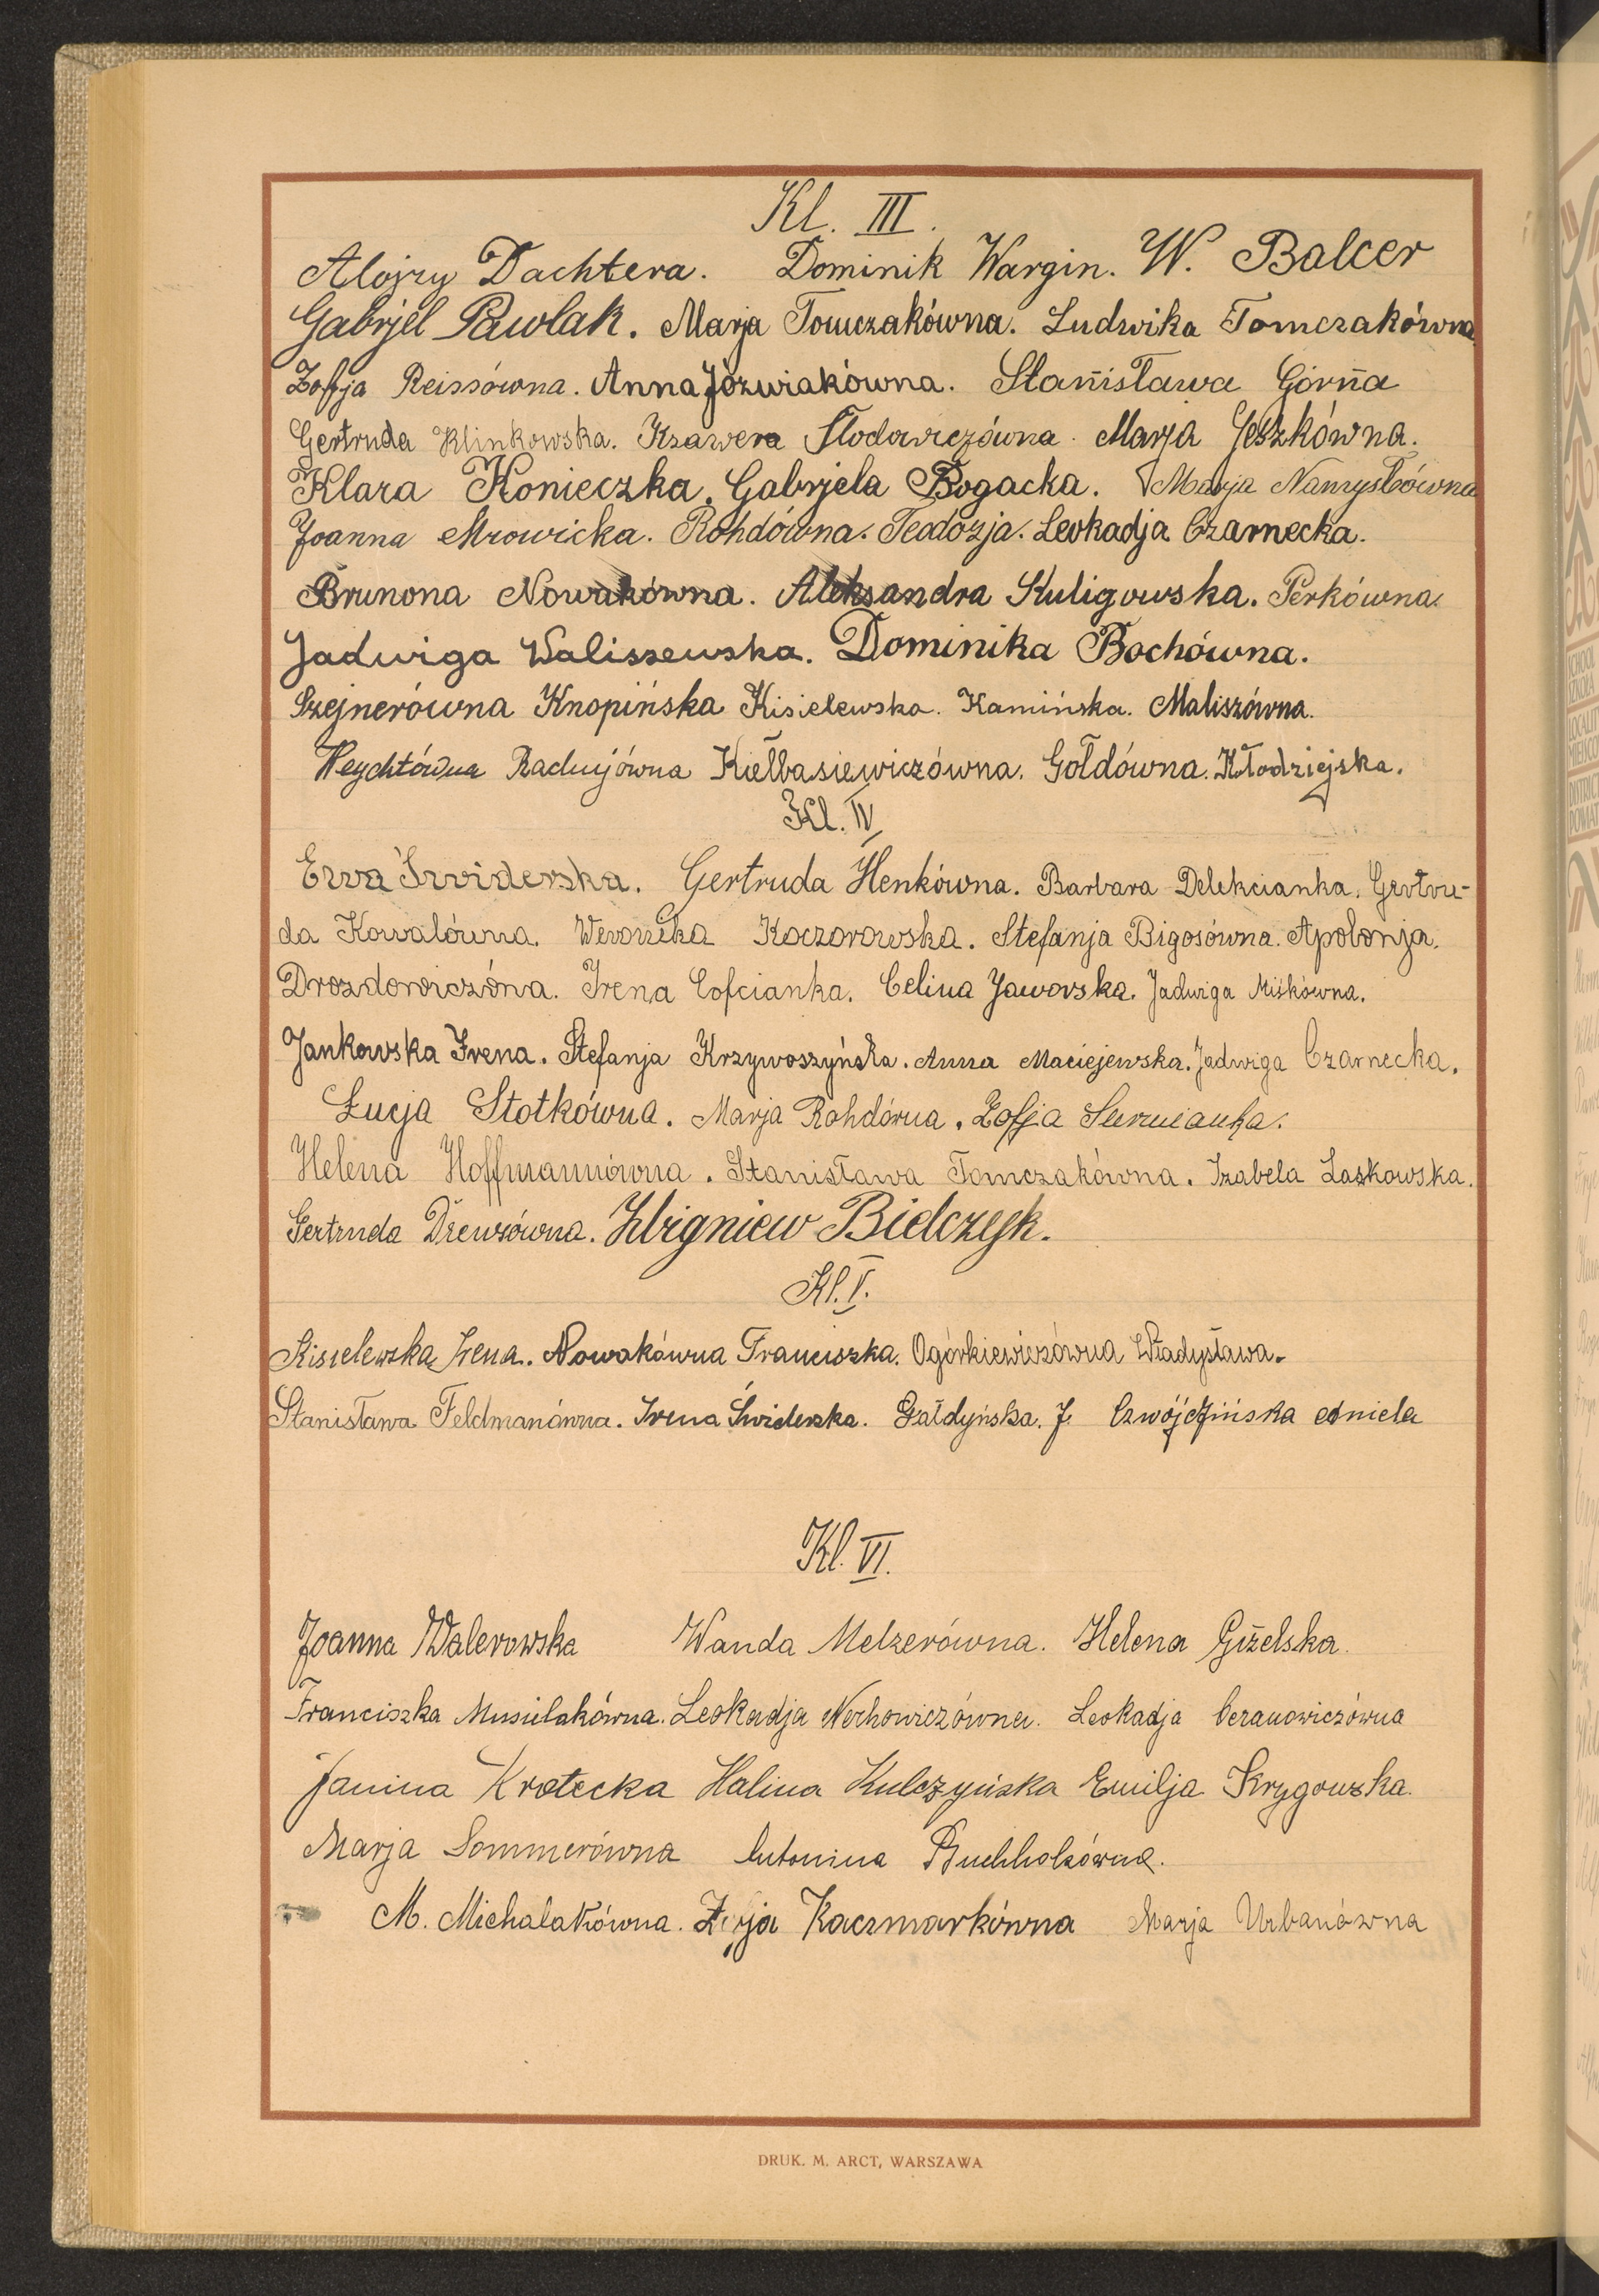 Kl. III.
Alojzy Dachtera. Dominik Wargin. W. Balcer
Gabrjel Pawlak. Marja Tomczakówna. Ludwika Tomczakówna
Zofja Reissówna. Anna Jóźwiakówna. Stanisława Górna
Gertruda Klinkowska. Ksawera Słodowiczówna. Marja Jeszkówna.
Klara Konieczka. Gabrjela Bogacka. Marja Namysłówna
Joanna Mrowicka. Rohdówna. Teodozja. Leokadja Czarnecka.
Brunona Nowakówna. Aleksandra Kuligowska. Perkówna.
Jadwiga Waliszewska. Dominika Bochówna.
Szejnerówna Knopińska Kisielewska. Kamińska. Maliszówna.
Weychtówna Radujówna Kiełbasiewiczówna. Gołdówna. Kłodziejska.
Kl. IV
Ewa Świderska. Gertruda Henkówna. Barbara Delekcianka. Gertru-
da Kowalówna. Weronika Koczorowska. Stefanja Bigosówna. Apolonja.
Drozdowiczówna. Irena Cofcianka. Celina Jaworska. Jadwiga Miśkówna.
Jankowska Irena. Stefanja Krzywoszyńska. Anna Maciejewska. Jadwiga Czarnecka.
Łucja Stotkówna. Marja Rohdówna. Zofja
Helena Hoffmannówna. Stanisława Tomczakówna. Izabela Laskowska.
Gertruda Drewsówna. Zbigniew Bielczyk.
Kl. V.
Kisielewska Irena. Nowakówna Franciszka. Ogórkiewiczówna Władysława.
Stanisława Feldmanówna. Irena Świderska. Gałdyńska. J. Czwójdzińska Aniela
Kl. VI.
Joanna Walerowska Wanda Melzerówna. Helena Giżelska.
Franciszka Musielakówna. Leokadja Nochowiczówna. Leokadja Ceranowiczówna
Janina Krotecka Halina Kulczyńska Emilja Skrygowska.
Marja Sommerówna Antonina Buchholzówna.
M. Michalakówna. Zofja Kaczmarkówna Marja Urbanówna
DRUK. M. ARCT, WARSZAWA